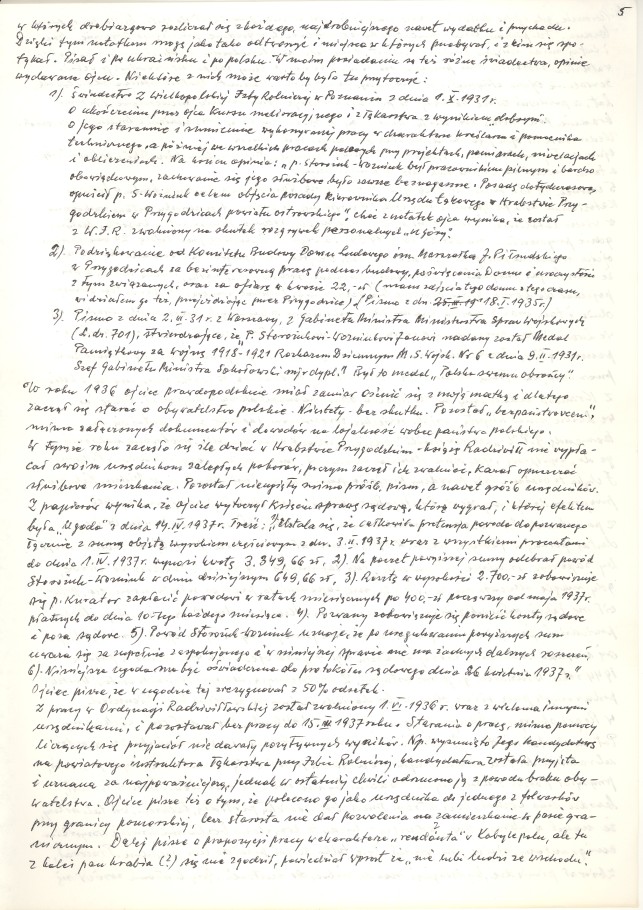 5
w których drobiazgowo rozliczał się z każdego, najdrobniejszego nawet wydatku i przychodu.
Dzięki tym notatkom mogę jako tako odtworzyć i miejsca w których przebywał, i z kim się spo-
tykał. Pisał i po ukraińsku i po polsku. W moim posiadaniu są też różne świadectwa, opinie
wydawane ojcu. Niektóre z nich może warto by było tu przytoczyć:
1). Świadectwo Z Wielkopolskiej Izby Rolniczej w Poznaniu z dnia 1.X.1931r.
O ukończeniu przez ojca Kursu melioracyjnego i łąkarstwa z wynikiem dobrym.
O jego starannie i sumiennie wykonywanej pracy w charakterze kreślarza i pomocnika
technicznego, a później we wszelkich pracach przy projektach, pomiarach, niwelacjach
i obliczeniach. Na końcu opinia: "p. Storożuk-Wozniuk był pracownikiem pilnym i bardzo
obowiązkowym, zachowanie się jego służbowe było zawsze bez nagannne. Posadę dotychczasową
opuścił p. S-Woźniuk celem objęcia posady Kierownika Urzędu Łąkowego w Hrabstwie Przy-
godzkiem w Przygodzicach powiatu ostrowskiego", choć z notatek ojca wynika, że został
z W.I.R. zwolniony na skutek rozgrywek personalnych "u góry".
2). Podziękowanie od Komitetu Budowy Domu Ludowego im. Marszałka J. Piłsudskiego
w Przygodzicach za bezinteresowną pracę podczas budowy, poświęcenia Domu i uroczystości
z tym związanych, oraz za ofiarę w kwocie 22,-zł (mam zdjęcia tego domu z tego czasu,
widziałem go też, przejeżdżając przez Przygodzice) (Pismo z dn. 18.I.1935r.)
3) Pismo z dnia 2.VI.31 r. z Warszawy, z Gabinetu Ministra Ministerstwa Spraw Wojskowych
(L.dr. 701), stwierdzające, że "P. Storożukowi-Wozniukowi Zenonowi nadany został Medal
Pamiątkowy za wojnę 1918-1921 Rozkazem Dziennym M.S.Wojsk. Nr 6 z dnia 9.II.1931r.
Szef Gabinetu Ministra Sokołowski mjr dypl." Był to medal "Polska swemu obrońcy"
W roku 1936 ojciec prawdopodobnie miał zamiar ożenić się z moją matką i dlatego
zaczął się starać o obywatelstwo polskie. Niestety - bez skutku. Pozostał "bezpaństwowcem",
mimo załączonych dokumentów i dowodów na lojalność wobec państwa polskiego.
W tymże roku zaczęło się źle dziać w Hrabstwie Przygodzkim - książę Radziwiłł nie wypła-
cał swoim urzędnikom zaległych poborów, poczym zaczął ich zwalniać, kazał opuszczać
służbowe mieszkania. Pozostał nieugięty mimo próśb, pism, a nawet gróźb urzędników.
Z papierów wynika, że ojciec wytoczył księciu sprawę sądową, którą wygrał, i której efektem
była "Ugoda" z dnia 14.IV.1937r. Treść: "Ustala się, że całkowita pretensja powoda do pozwanego
łącznie z sumą objętą wyrokiem częściowym z dn. 3.II.1937r. wraz z wszystkimi procentami
do dnia 1.IV.1937r. wynosi kwotę 3.349,66 zł, 2). Na poczet powyższej sumy odebrał powód
Storożuk-Wozniuk w dniu dzisiejszym 649,66 zł, 3). Resztę w wysokości 2.700,-zł zobowiązuje
się p. Kurator zapłacić powodowi w ratach miesięcznych po 400,-zł począwszy od maja 1937r.
płatnych do dnia 10-tego każdego miesiąca. 4). Pozwany zobowiązuje się ponieść koszty sądowe
i poza sądowe. 5). Powód Storożuk-Wozniuk uznaje, że po uregulowaniu powyższych sum
uważa się za zupełnie zaspokojonego i w niniejszej sprawie nie ma żadnych dalszych roszczeń,
6). Niniejsza ugoda ma być oświadczona do protokółu sądowego dnia 26 kwietnia 1937r."
Ojciec pisze, że w ugodzie tej zrezygnował z 50% odsetek.
Z pracy w Ordynacji Radziwiłłowskiej został zwolniony 1.VI.1936r. wraz z wieloma innymi
urzędnikami, i pozostawał bez pracy do 15.III.1937 roku. Starania o pracę, mimo pomocy
liczących się przyjaciół nie dawały pozytywnych wyników. Np. wysunięto jego kandydaturę
na powiatowego instruktora łąkarstwa przy Izbie Rolniczej, kandydatura została przyjęta
i uznana za najpoważniejszą, jednak w ostatniej chwili odrzucono ją z powodu braku oby-
watelstwa. Ojciec pisze też o tym, że polecono go jako urzędnika do jednego z folwarków
przy granicy pomorskiej, lecz starosta nie dał pozwolenia na zamieszkanie w pasie gra-
nicznym. Dalej pisze o propozycji pracy w charakterze "rendanta" w Kobylepolu, ale tu
z kolei pan hrabia (?) się nie zgodził, powiedział wprost że "nie lubi ludzi ze wschodu".